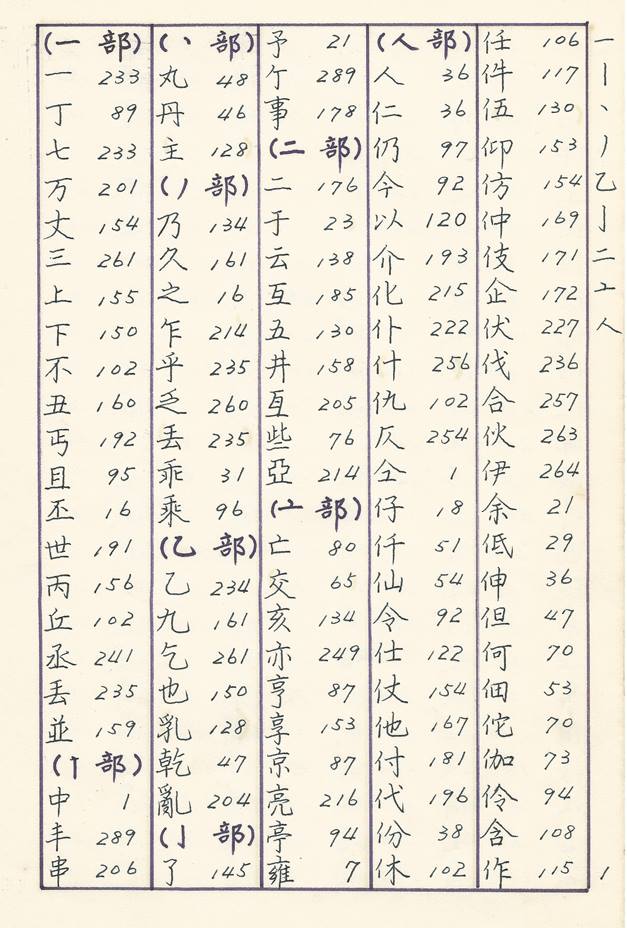 (一 部)
一 233
丁 89
七 233
万 201
丈 154
三 261
上 155
下 150
不 102
丑 160
丐 192
且 95
丕 16
世 191
丙 156
丘 102
丞 241
丟 235
並 159
(丨 部)
中 1
丰 289
串 206
(丶 部)
丸 48
丹 46
主 128
(丿 部)
乃 134
久 161
之 16
乍 214
乎 235
乏 260
丟 235
乖 31
乘 96
(乙 部)
乙 234
九 161
乞 261
也 150
乳 128
乾 47
亂 204
(亅 部)
了 145
予 21
亍 289
事 178
(二 部)
二 176
于 23
云 138
互 185
五 130
井 158
亙 205
些 76
亞 214
(亠 部)
亡 80
交 65
亥 134
亦 249
亨 87
享 153
京 87
亮 216
亭 94
雍 7
(人 部)
人 36
仁 36
仍 97
今 92
以 120
介 193
化 215
仆 222
什 256
仇 102
仄 254
仝 1
仔 18
仟 51
仙 54
令 92
仕 122
仗 154
他 167
付 181
代 196
份 38
休 102
任 106
件 117
伍 130
仰 153
仿 154
仲 169
伎 171
企 172
伏 227
伐 236
合 257
伙 263
伊 264
余 21
低 29
伸 36
但 47
何 70
佃 53
佗 70
伽 73
伶 94
含 108
作 115
一
丨
丶
丿
乙
亅
二
亠
人
1